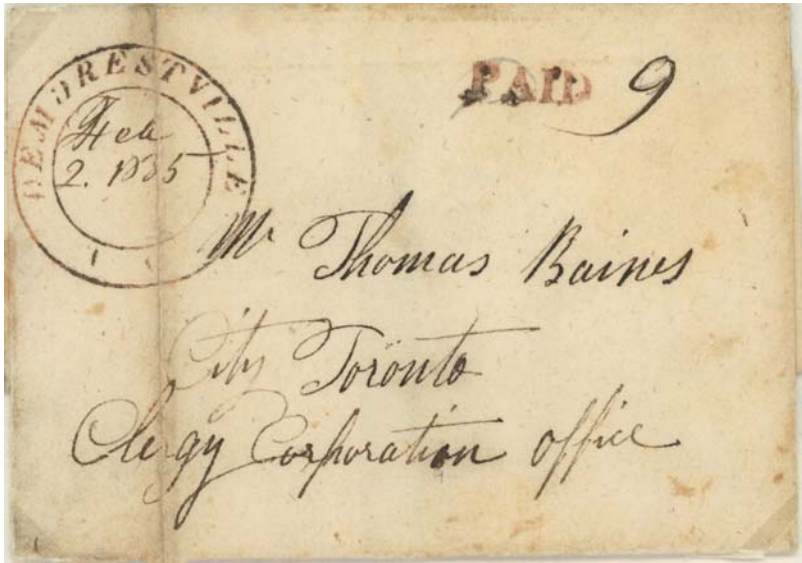 DEMORESTVILLE
Feb
2. 1835
PAID 9
Mr Thomas Baines
City Toronto
Clergy Corporation office